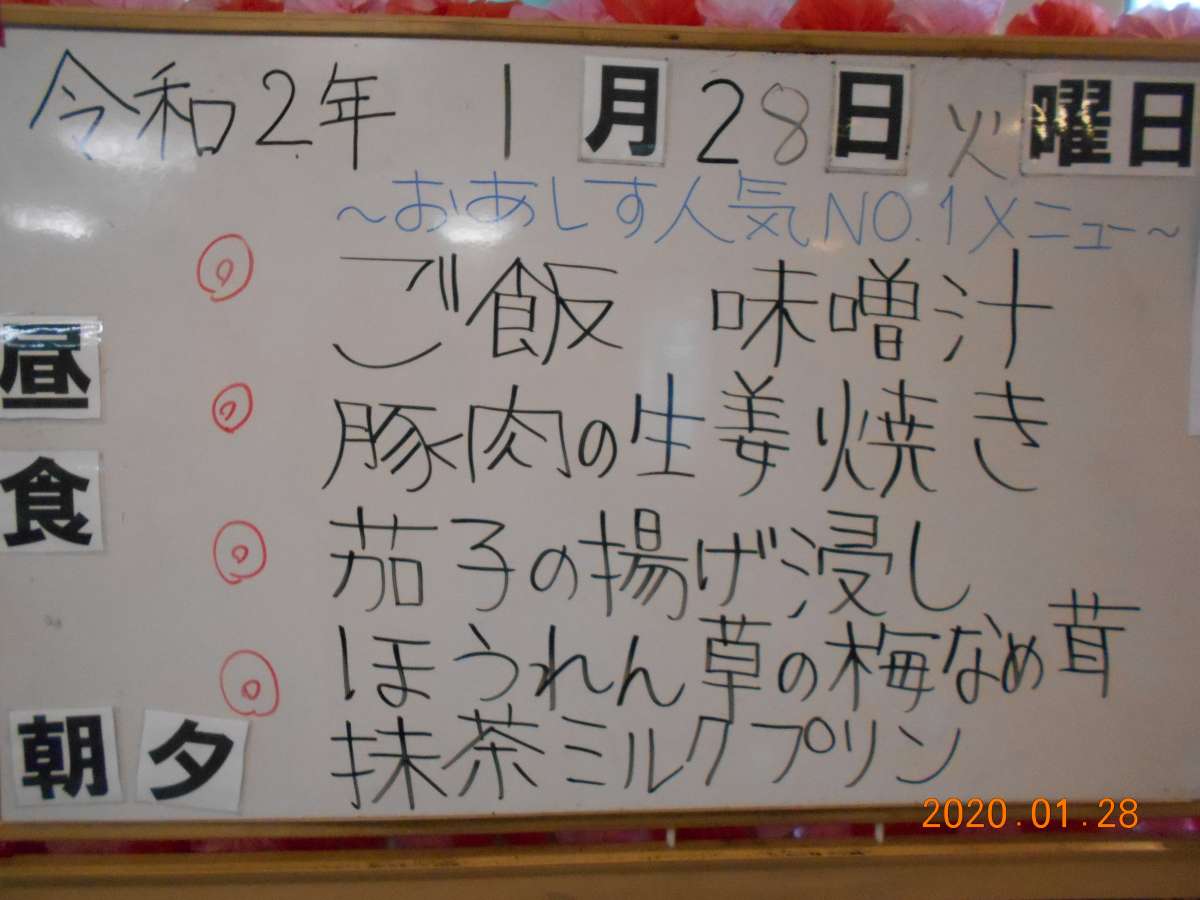 令和2年 1月28日 火曜日
～おあしす人気NO.1メニュー～
ご飯 味噌汁
豚肉の生姜焼き
茄子の揚げ浸し
ほうれん草の梅なめ茸
抹茶ミルクプリン
昼食
朝 夕
2020.01.28